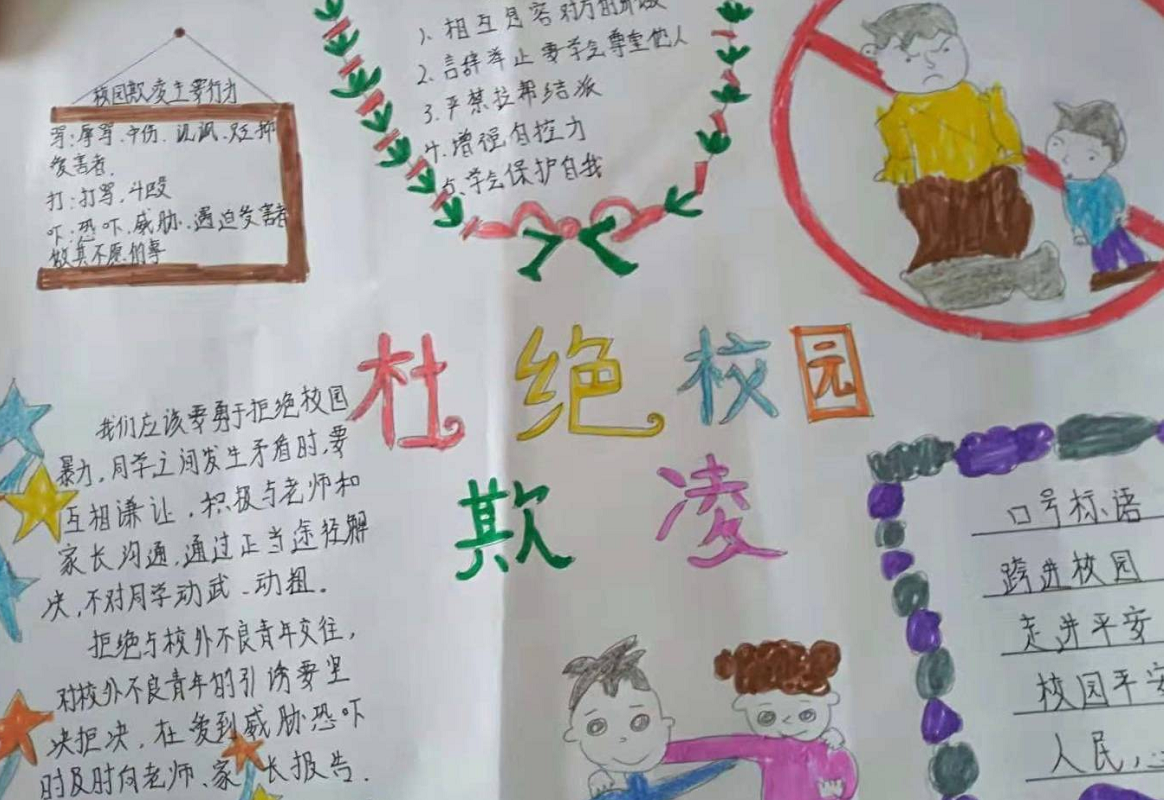 校园欺凌主要行力
骂:辱骂、中伤、讥讽、贬抑
受害者.
打:打骂、斗殴
吓:恐吓、威胁、逼迫受害者
做其不愿的事
1、相互包容对方的
2、言辞举止要学会尊重他人
3、严禁拉帮结派
4、增强自控力
5、学会保护自我
杜绝校园
欺凌
我们应该要勇于拒绝校园
暴力,同学之间发生矛盾时,要
互相谦让,积极与老师和
家长沟通,通过正当途径解
决,不对同学动武、动粗。
拒绝与校外不良青年交往,
对校外不良青年的引诱要坚
决拒决,在受到威胁恐吓
时及时向老师、家长报告.
口号标语
跨进校园
走进平安
校园平安
人民,